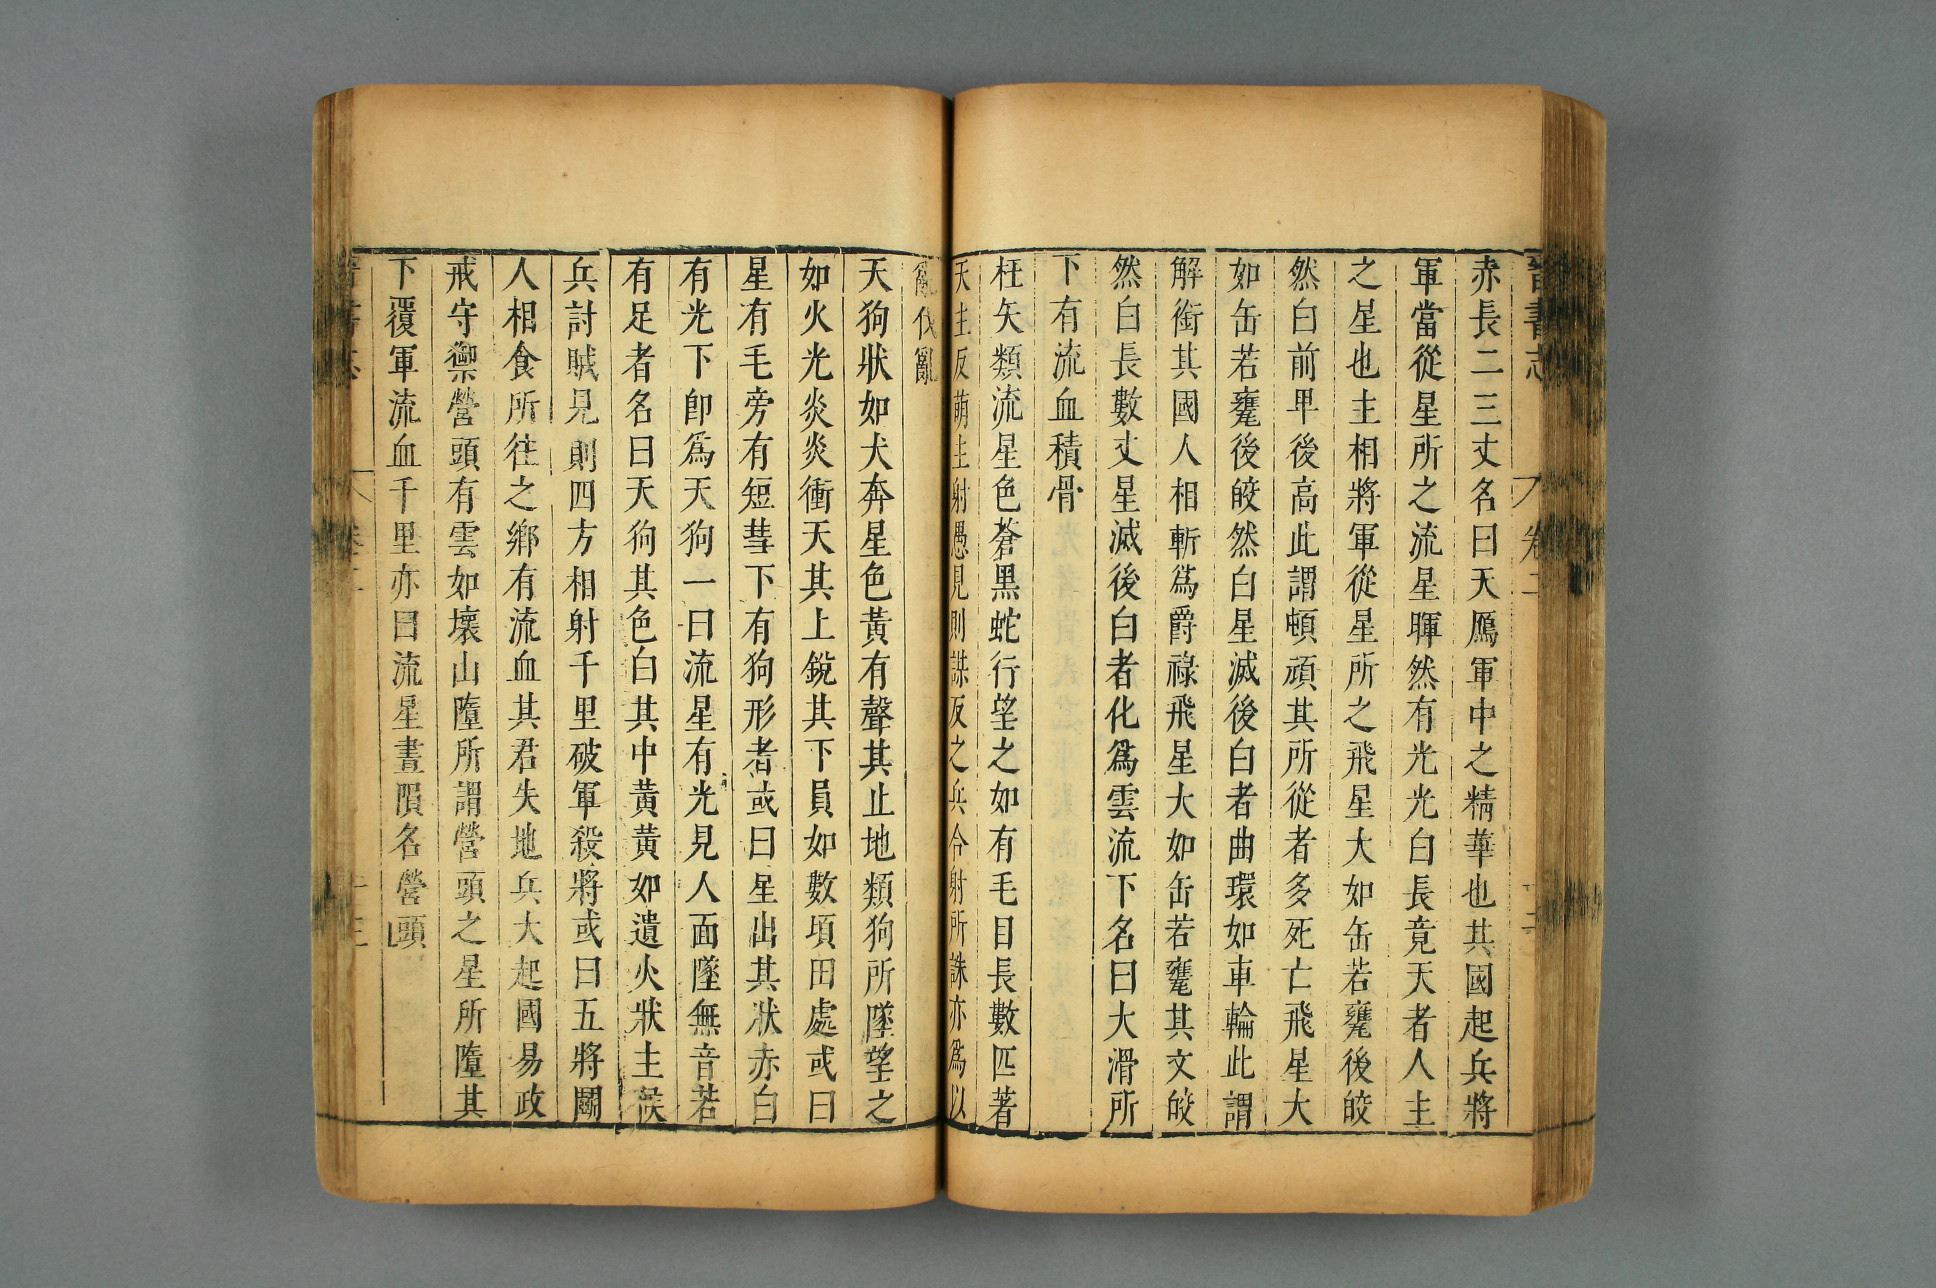 晉書志 卷二
赤長二三丈名曰天鴈軍中之精華也其國起兵將
軍當從星所之流星暉然有光光白長竟天者人主
之星也主相將軍從星所之飛星大如缶若甕後皎
然白前卑後高此謂頓頑其所從者多死亡飛星大
如缶若甕後皎然白星滅後白者曲環如車輪此謂
解銜其國人相斬爲爵祿飛星大如缶若甕其文皎
然白長數丈星滅後白者化爲雲流下名曰大滑所
下有流血積骨
枉矢類流星色蒼黑蛇行望之如有毛目長數匹著
天主反萌主射愚見則謀反之兵合射所誅亦爲以
亂伐亂
天狗狀如犬奔星色黃有聲其止地類狗所墜望之
如火光炎炎衝天其上銳其下員如數頃田處或曰
星有毛旁有短彗下有狗形者或曰星出其狀赤白
有光下卽爲天狗一曰流星有光見人面墜無音若
有足者名曰天狗其色白其中黃黃如遺火狀主候
兵討賊見則四方相射千里破軍殺將或曰五將鬭
人相食所往之鄉有流血其君失地兵大起國易政
戒守禦營頭有雲如壞山墮所謂營頭之星所墮其
下覆軍流血千里亦曰流星晝隕名營頭